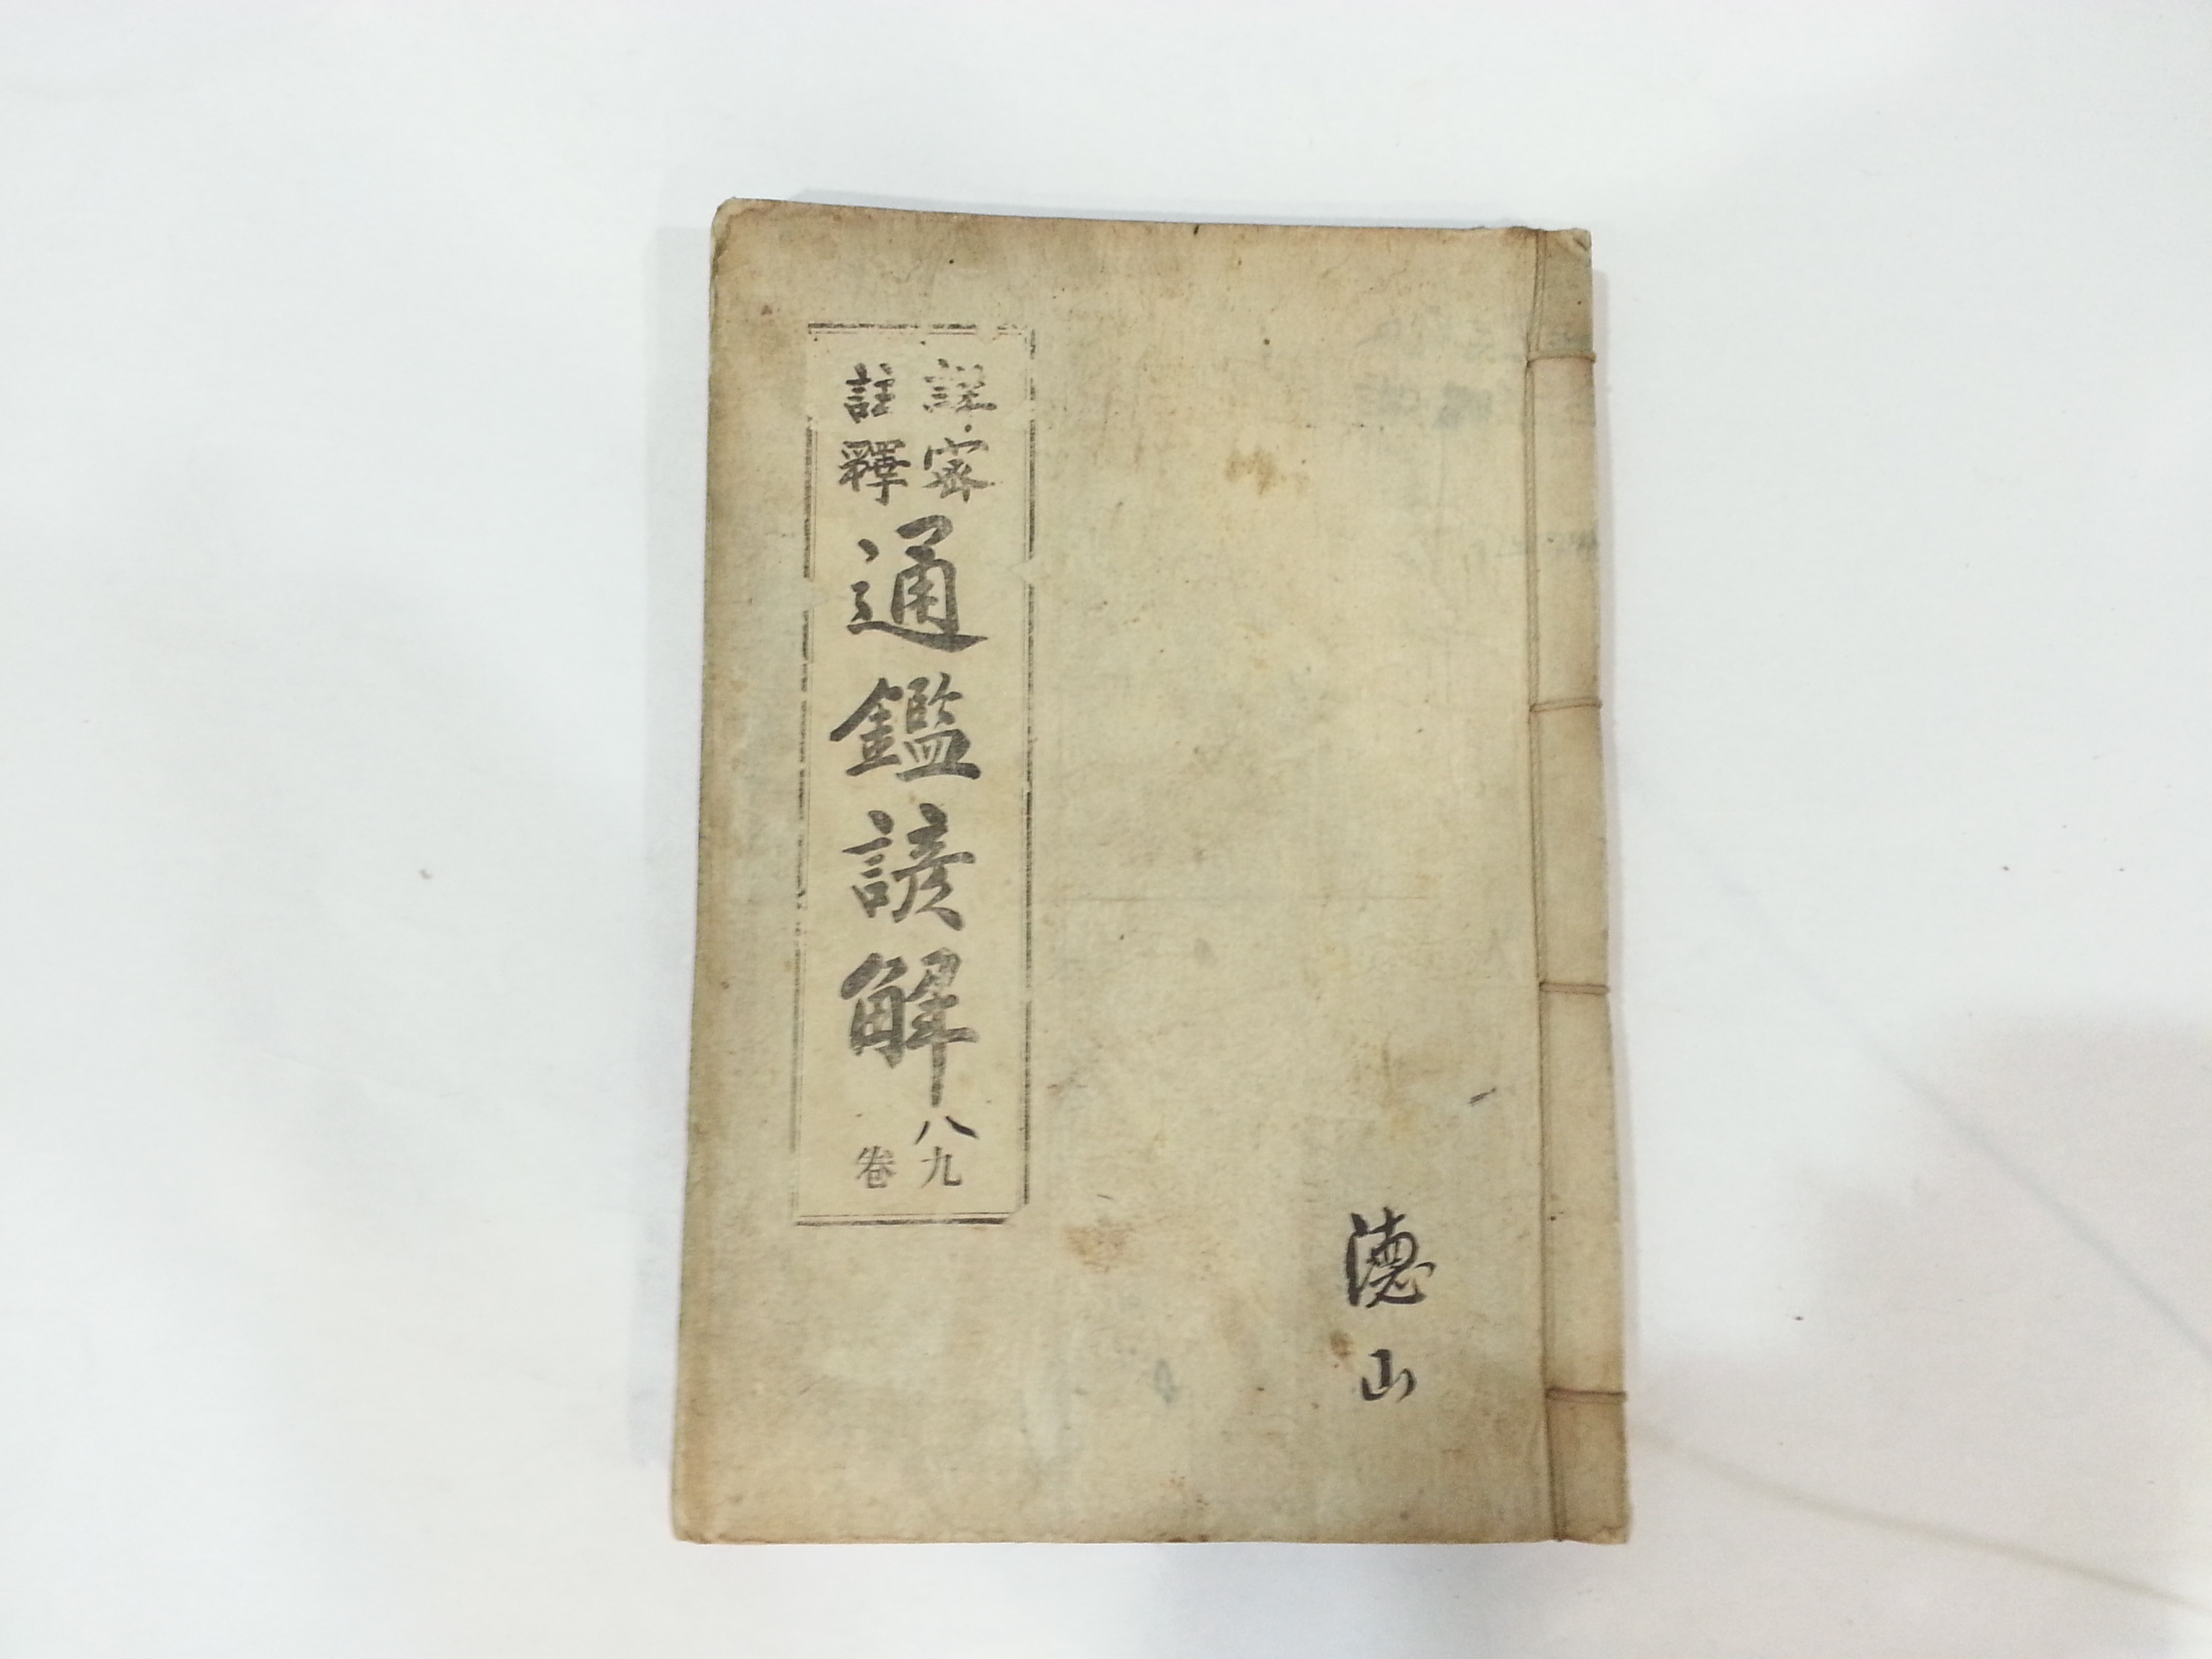 詳密
註釋
通鑑諺解
八九
卷
德山